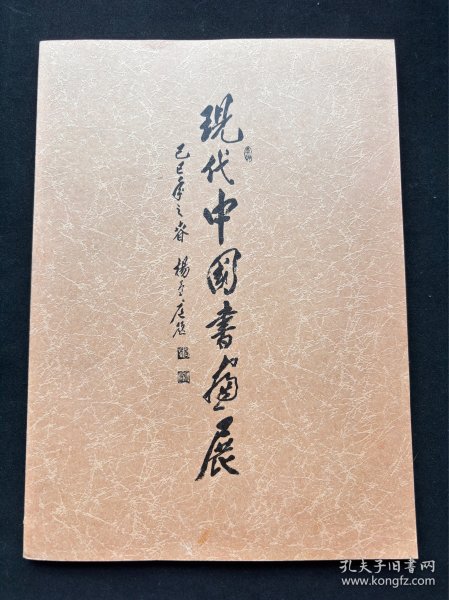 現代中國書畫展
己巳年之春 楊
孔夫子旧书网
www.kongfz.com